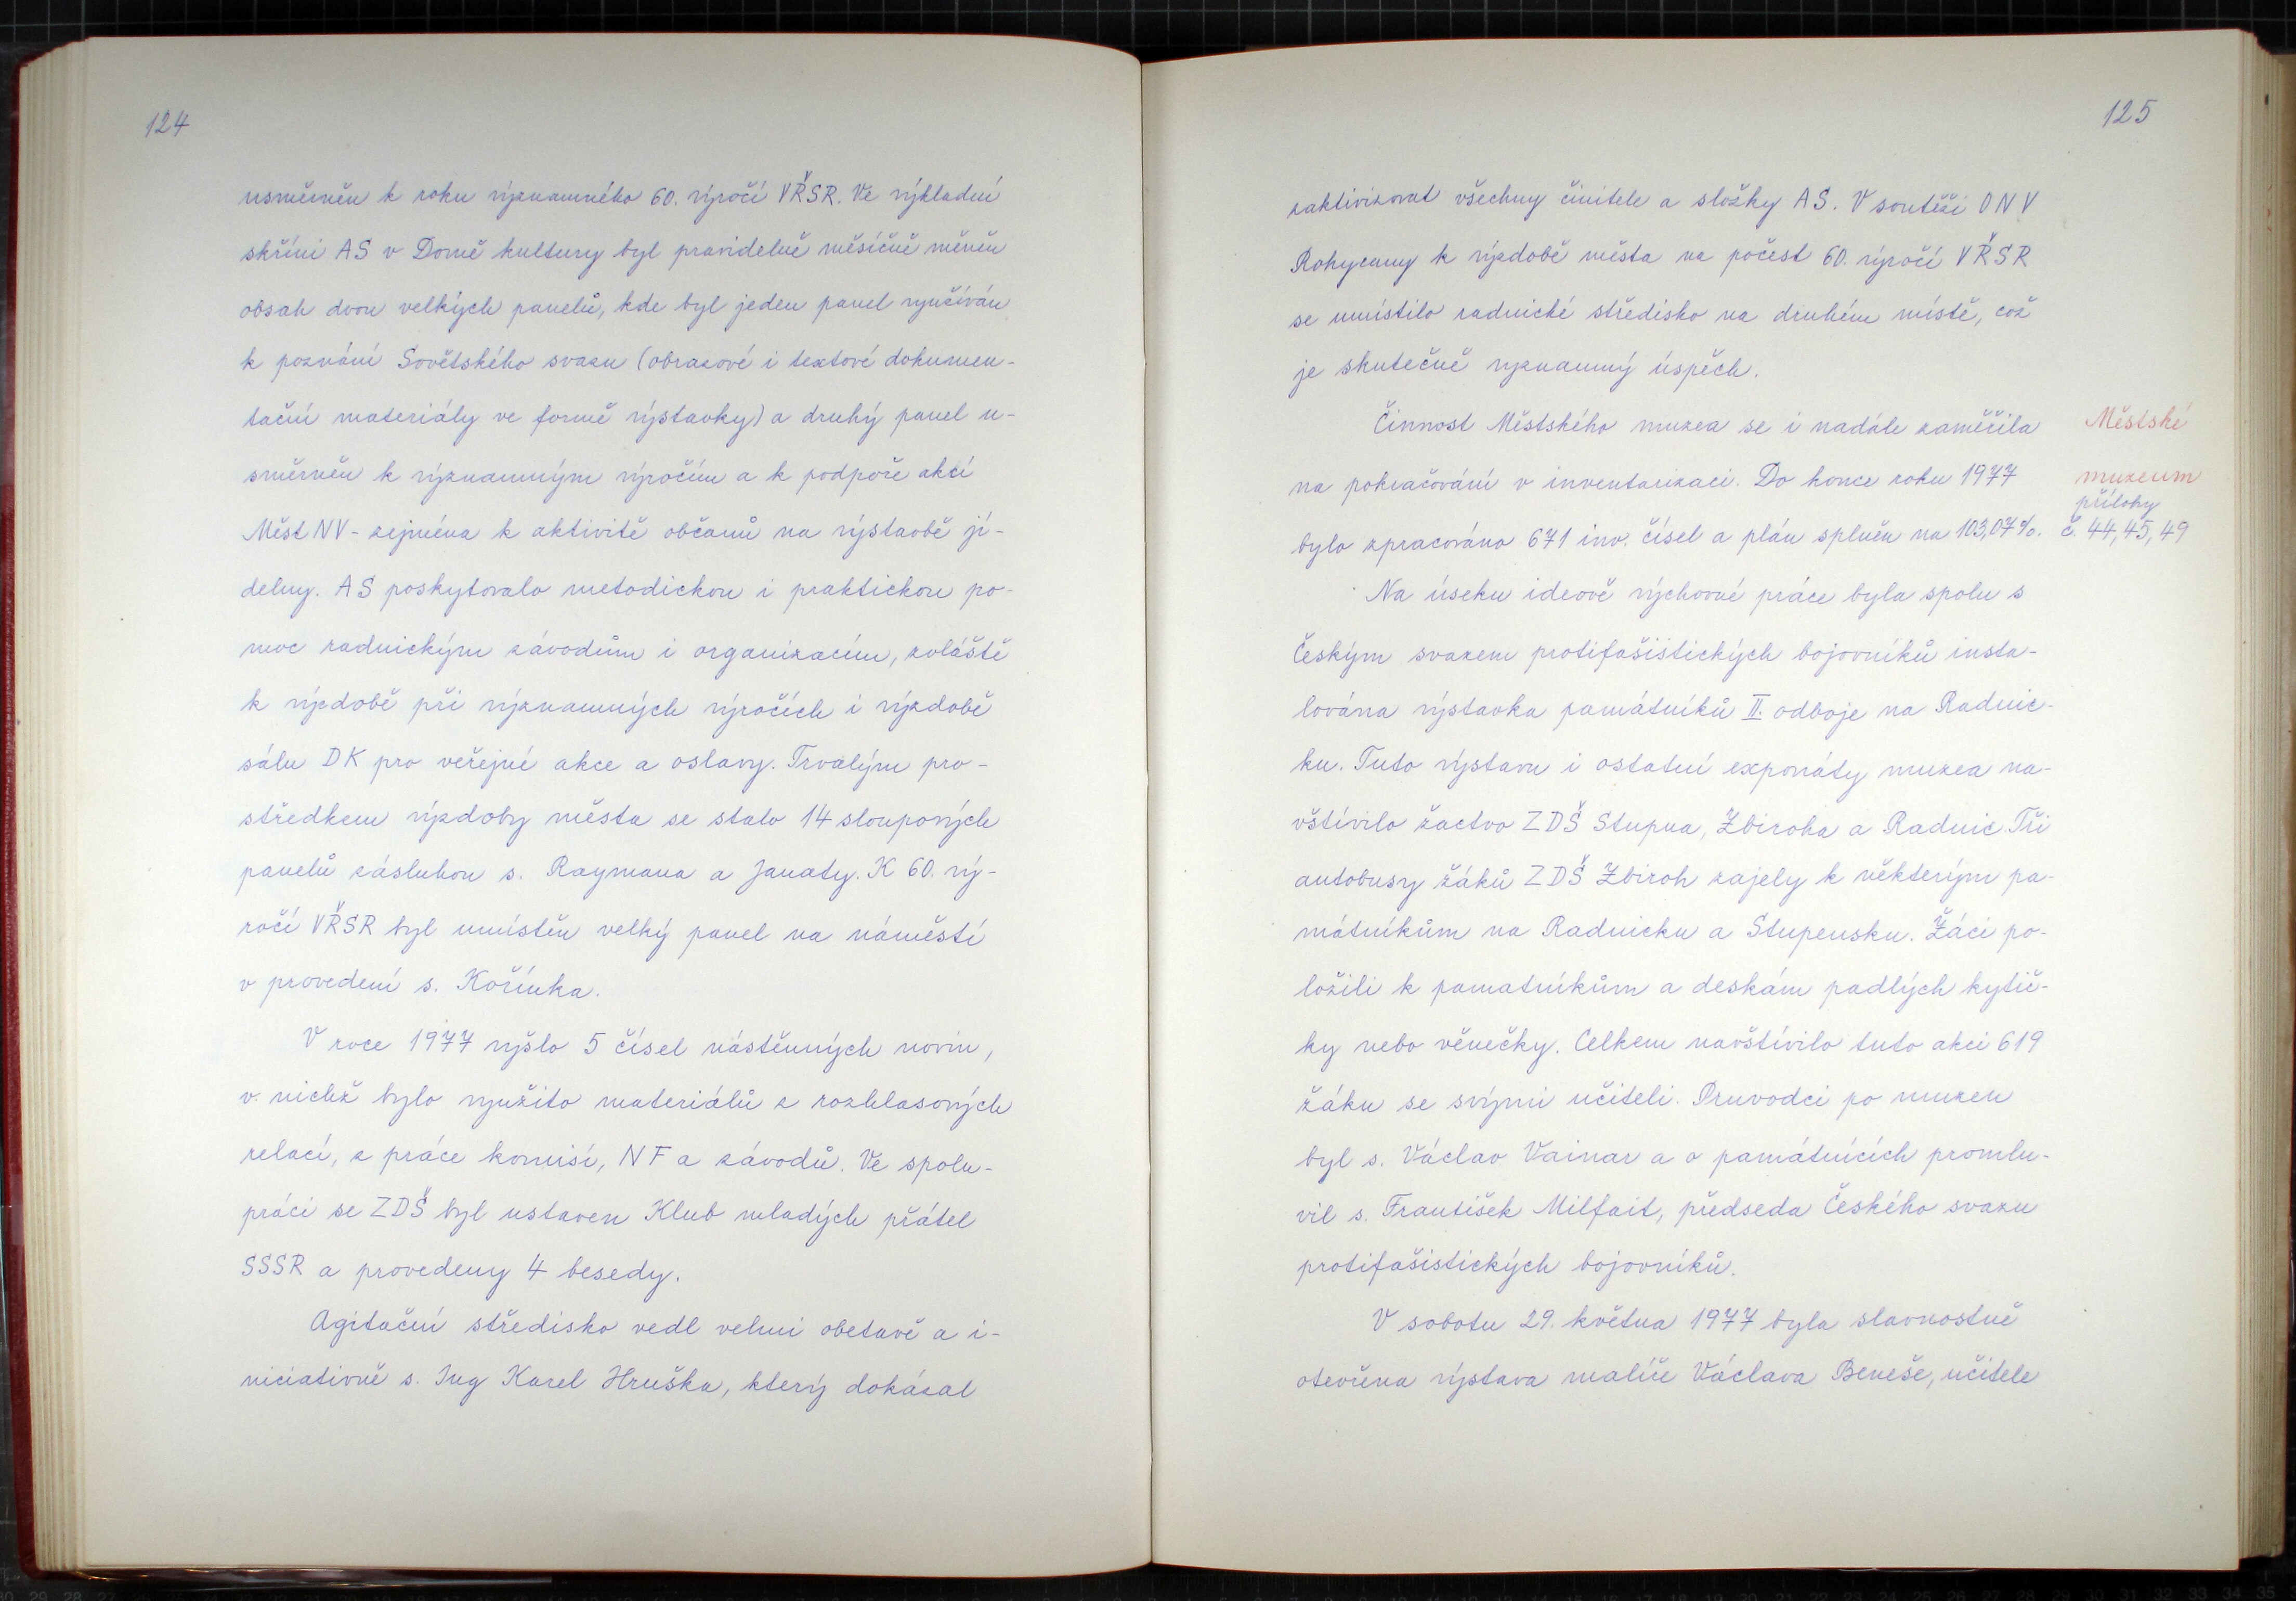 124
usměrněn k roku významného 60. výročí VŘSR. Ve výkladní
skříni AS v Domě kultury byl pravidelně měsíčně měněn
obsah dvou velkých panelů, kde byl jeden panel využíván
k poznání Sovětského svazu (obrazové i textové dokumen-
tační materiály ve formě výstavky) a druhý panel u-
směrněn k významným výročím a k podpoře akcí
Měst NV - zejména k aktivitě občanů na výstavbě jí-
delny. AS poskytovalo metodickou i praktickou po-
moc radnickým závodům i organizacím, zvláště
k výzdobě při významných výročích i výzdobě
sálu DK pro veřejné akce a oslavy. Trvalým pro-
středkem výzdoby města se stalo 14 sloupových
panelů zásluhou s. Raymana a Janaty. K 60. vý-
ročí VŘSR byl umístěn velký panel na náměstí
v provedení s. Kořínka.
V roce 1977 vyšlo 5 čísel nástěnných novin,
v nichž bylo využito materiálů z rozhlasových
relací, z práce komisí, NF a závodů. Ve spolu-
práci se ZDŠ byl ustaven Klub mladých přátel
SSSR a provedeny 4 besedy.
Agitační středisko vedl velmi obetavě a i-
niciativně s. Ing Karel Hruška, který dokázal
125
zaktivizovat všechny činitele a složky AS. V soutěži ONV
Rokycany k výzdobě města na počest 60. výročí VŘSR
se umístilo radnické středisko na druhém místě, což
je skutečně vyznamný úspěch.
Činnost Městského muzea se i nadále zaměřila
Městské
na pokračování v inventarizaci. Do konce roku 1977
muzeum
přílohy
bylo zpracováno 671 inv. čísel a plán splněn na 103,07%.
č. 44, 45, 49
Na úseku ideově výchovné práce byla spolu s
Českým svazem protifašistických bojovníků insta-
lována výstavka památníků II. odboje na Radnic-
ku. Tuto výstavu i ostatní exponáty muzea na-
vštívilo žactvo ZDŠ Stupna, Zbiroha a Radnic. Tři
autobusy žáků ZDŠ Zbiroh zajely k některým pa-
mátníkům na Radnicku a Stupensku. Žáci po-
ložili k pamatníkům a deskám padlých kytič-
ky nebo věnečky. Celkem navštívilo tuto akci 619
žáku se svými učiteli. Pruvodci po muzeu
byl s. Václav Vainar a o památnících promlu-
vil s. František Milfait, předseda Českého svazu
protifašistických bojovníků.
V sobotu 29. května 1977 byla slavnostně
otevřena výstava malíře Václava Beneše, učitele